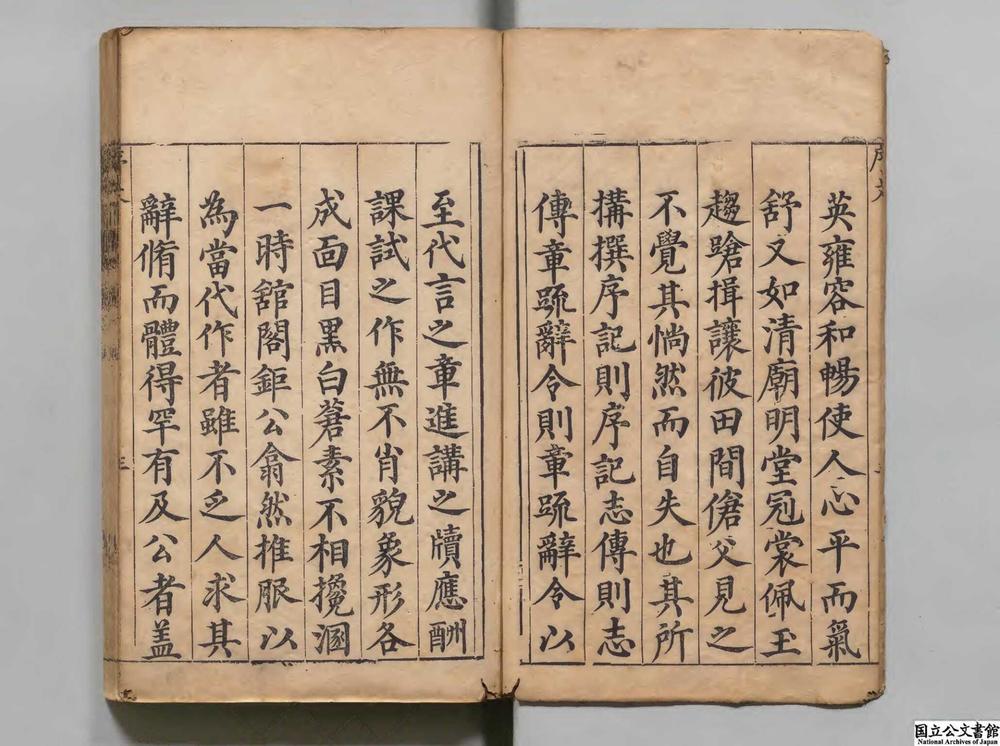 英雍容和暢使人心平而氣
舒又如清廟明堂冠裳佩玉
趨蹌揖讓彼田間傖父見之
不覺其惝然而自失也其所
搆撰序記則序記志傳則志
傳章疏辭令則章疏辭令以
至代言之章進講之牘應酬
課試之作無不肖貌象形各
成面目黑白蒼素不相攙溷
一時舘閣鉅公翕然推服以
為當代作者雖不乏人求其
辭脩而體得罕有及公者盖
三
国立公文書館
National Archives of Japan